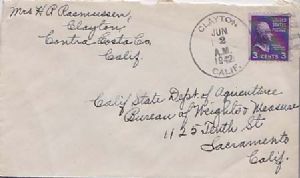 Mrs H P Rasmussen,
Clayton
Contra Costa Co,
Calif.
CLAYTON
JUN
2
A.M.
1942
CALIF.
3 CENTS 3
Calif State Dept. of Agriculture
Bureau of Weights & Measure
1125 Tenth St
Sacramento
Calif.